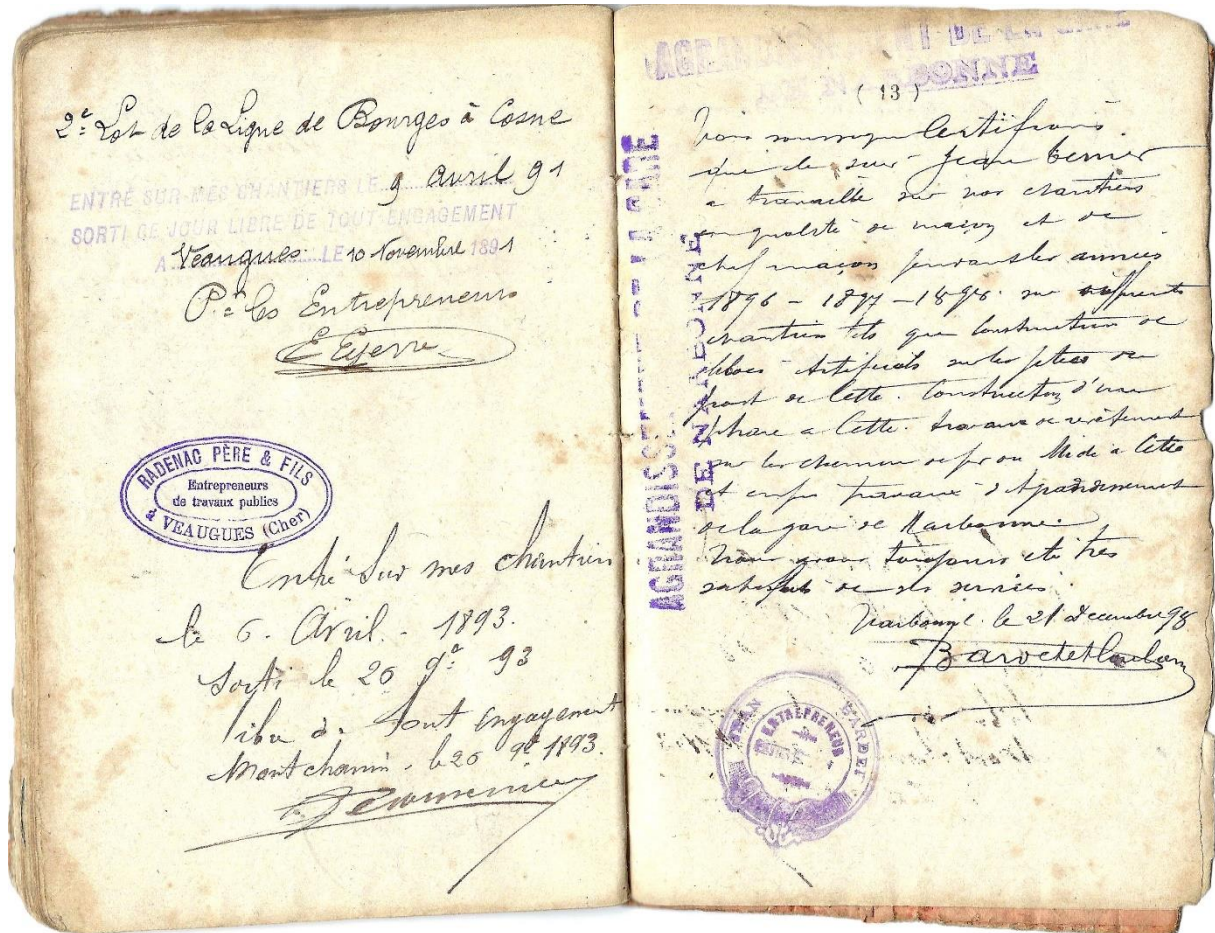 2e Lot de la Ligne de Bourges à Cosne
ENTRÉ SUR MES CHANTIERS LE 9 avril 91
SORTI CE JOUR LIBRE DE TOUT ENGAGEMENT
A Veaugues LE 10 Novembre 1891
Pr les Entrepreneurs
RADENAC PÈRE & FILS
Entrepreneurs
de travaux publics
à VEAUGUES (Cher)
Entré sur mes chantiers
le 6. Avril. 1893.
Sorti le 26 9e 93
libre de tout engagement
Montchanin. le 26 9e 1893.
AGRANDISSEMENT DE LA GARE
DE NARBONNE
( 13 )
AGRANDISSEMENT DE LA GARE
DE NARBONNE
Nous soussignés Certifions
que le sieur Jean
a travaillé sur nos chantiers
en qualité de maçon et de
chef maçon pendant les années
1896 - 1897 - 1898. sur différents
chantiers tels que Construction de
blocs Artificiels sur les jetées du
port de Cette. Construction d'un
phare a Cette. travaux de revêtement
sur les chemins de fer du Midi a Cette
et enfin travaux d'Agrandissement
de la gare de Narbonne.
Nous avons toujours été très
satisfaits de ses services.
Narbonne. le 21 Decembre 98
JEAN BARDET
ENTREPRENEUR